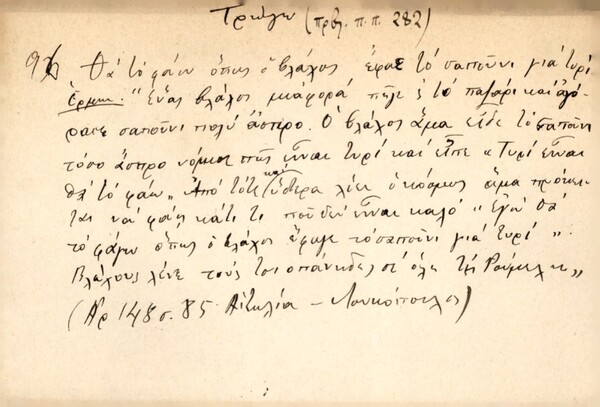 Τρώγω (πρβλ. π.π. 282)
96 Θά τό φάω ὅπως ὁ βλάχος ἔφαε τό σαπούνι γιά τυρί
Ἑρμην. "Ἕνας βλάχος μιά φορά πῆγε ς τό παζάρι καί ἀγό-
ρασε σαπούνι πολύ ἄσπρο. Ὁ βλάχος ἅμα εἶδε τό σαπούνι
τόσο ἄσπρο νόμισε πῶς εἶναι τυρί καί εἶπε "Τυρί εἶναι
θά τό φάω". Ἀπό τότε καί ὕστερα λέει ὁ κόσμος ἅμα πρόκει-
ται νά φάῃ κάτι τι πού δέν εἶναι καλό "Ἐγώ θά
τό φάγω ὅπως ὁ βλάχος ἔφαγε τό σαπούνι γιά τυρί".
Βλάχους λένε τούς τσοπάνηδες σ' ὅλη τή Ρούμελη"
(Ἀρ 148 σ. 85 Αἰτωλία – Λουκόπουλος)